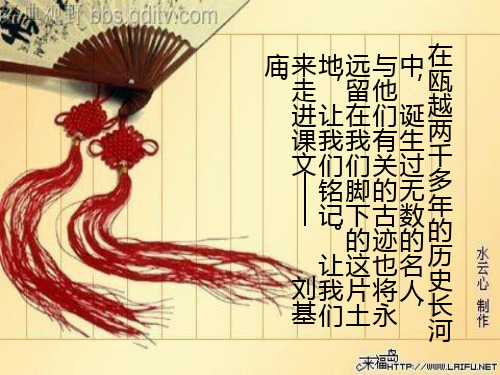 典视野 bbs.gditv.com
在瓯越两千多年的历史长河
中，诞生过无数的名人，
与他们有关的古迹也将永
远留在我们脚下的这片土
地，让我们铭记。让我们
来走进课文——刘基
庙。
水云心 制作
来福岛
HTTP://WWW.LAIFU.NET